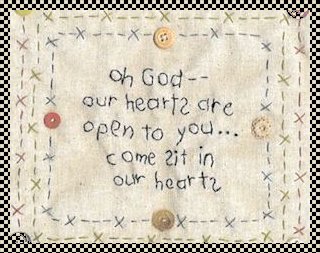 oh God--
our hearts are
open to you...
come sit in
our hearts